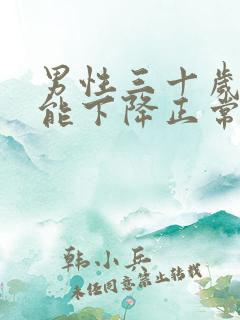 男性三十歲
能下降正常
韩小兵
未经同意禁止转载